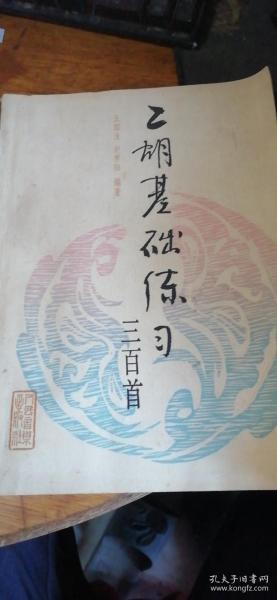 二胡基础练习
三百首
编著
孔夫子旧书网
www.kongfz.com